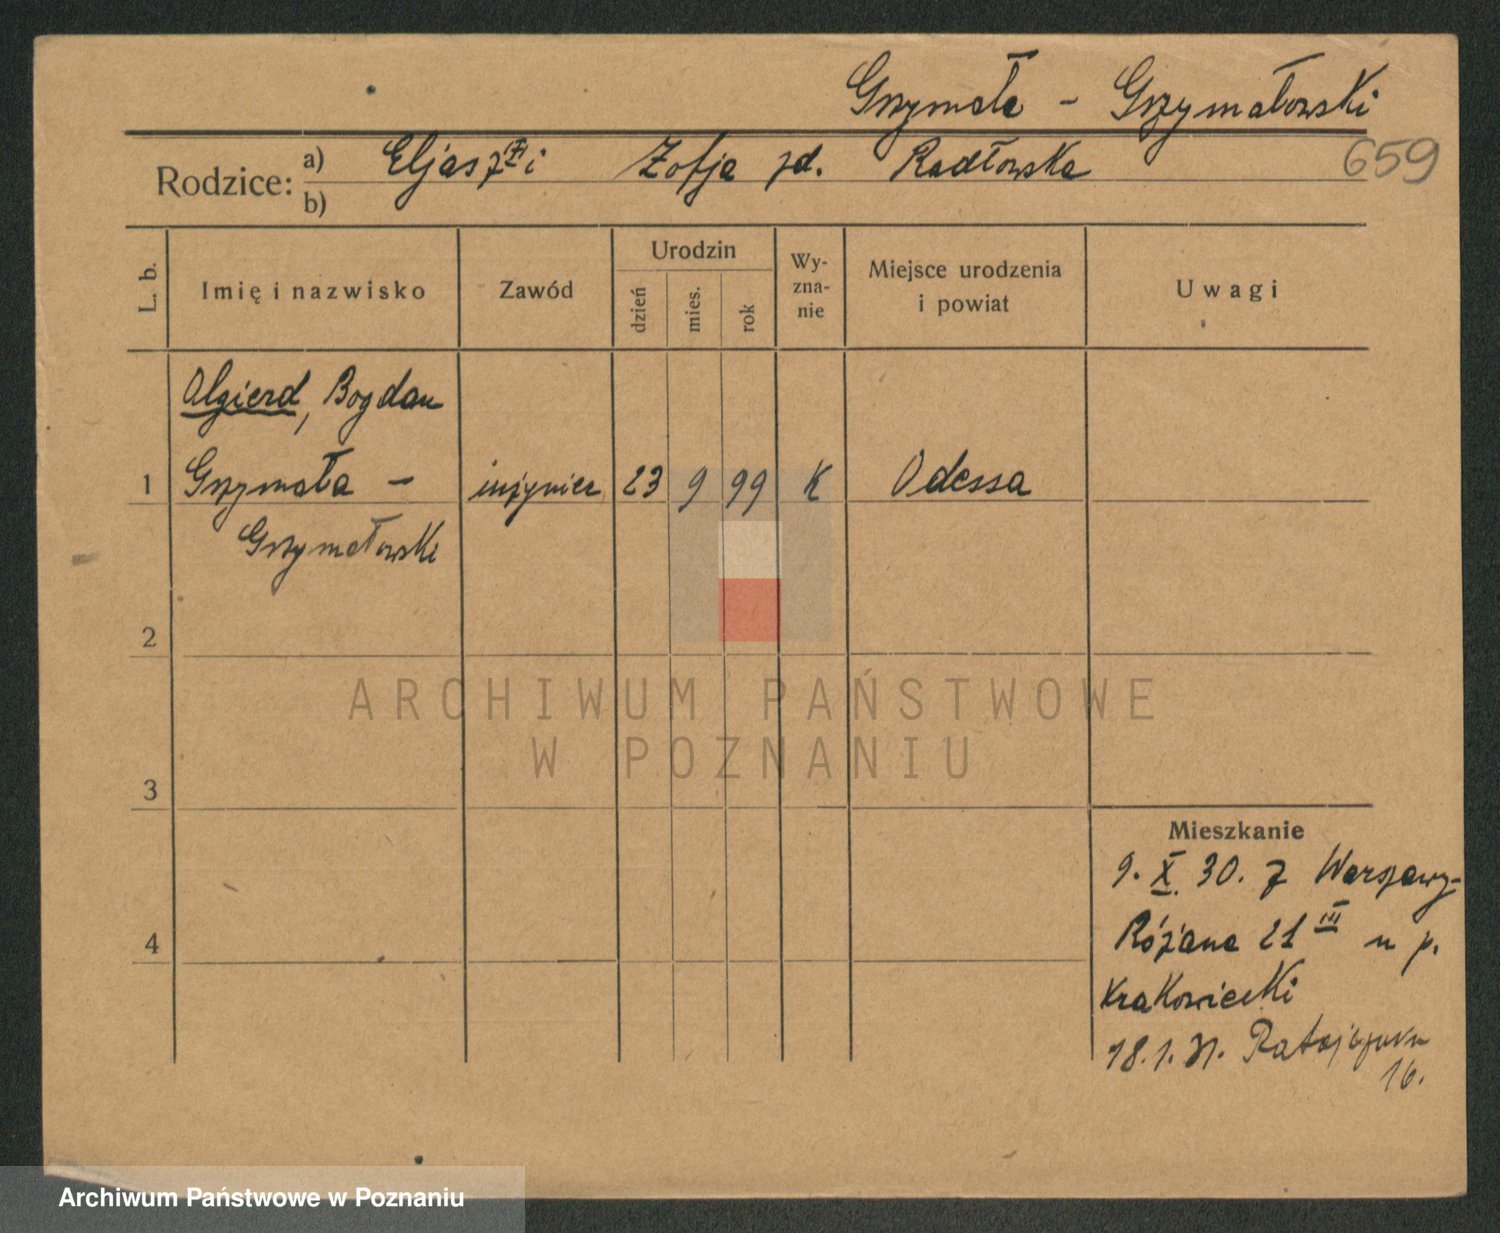 Grzymała - Grzymałowski
659
Rodzice: a) Eljasz i Zofja zd. Radłowska
b)
L. b.
Imię i nazwisko
Zawód
Urodzin
dzień
mies.
rok
Wy-
zna-
nie
Miejsce urodzenia
i powiat
Uwagi
Olgierd, Bogdan
1 Grzymała - inżynier 23 9 99 K Odessa
Grzymałowski
2
ARCHIWUM PAŃSTWOWE
W POZNANIU
3
Mieszkanie
9. X. 30. z Warszawy-
4 Różana 21 III u p.
Krakowiecki
18.1.31. Ratajczaka
16.
Archiwum Państwowe w Poznaniu